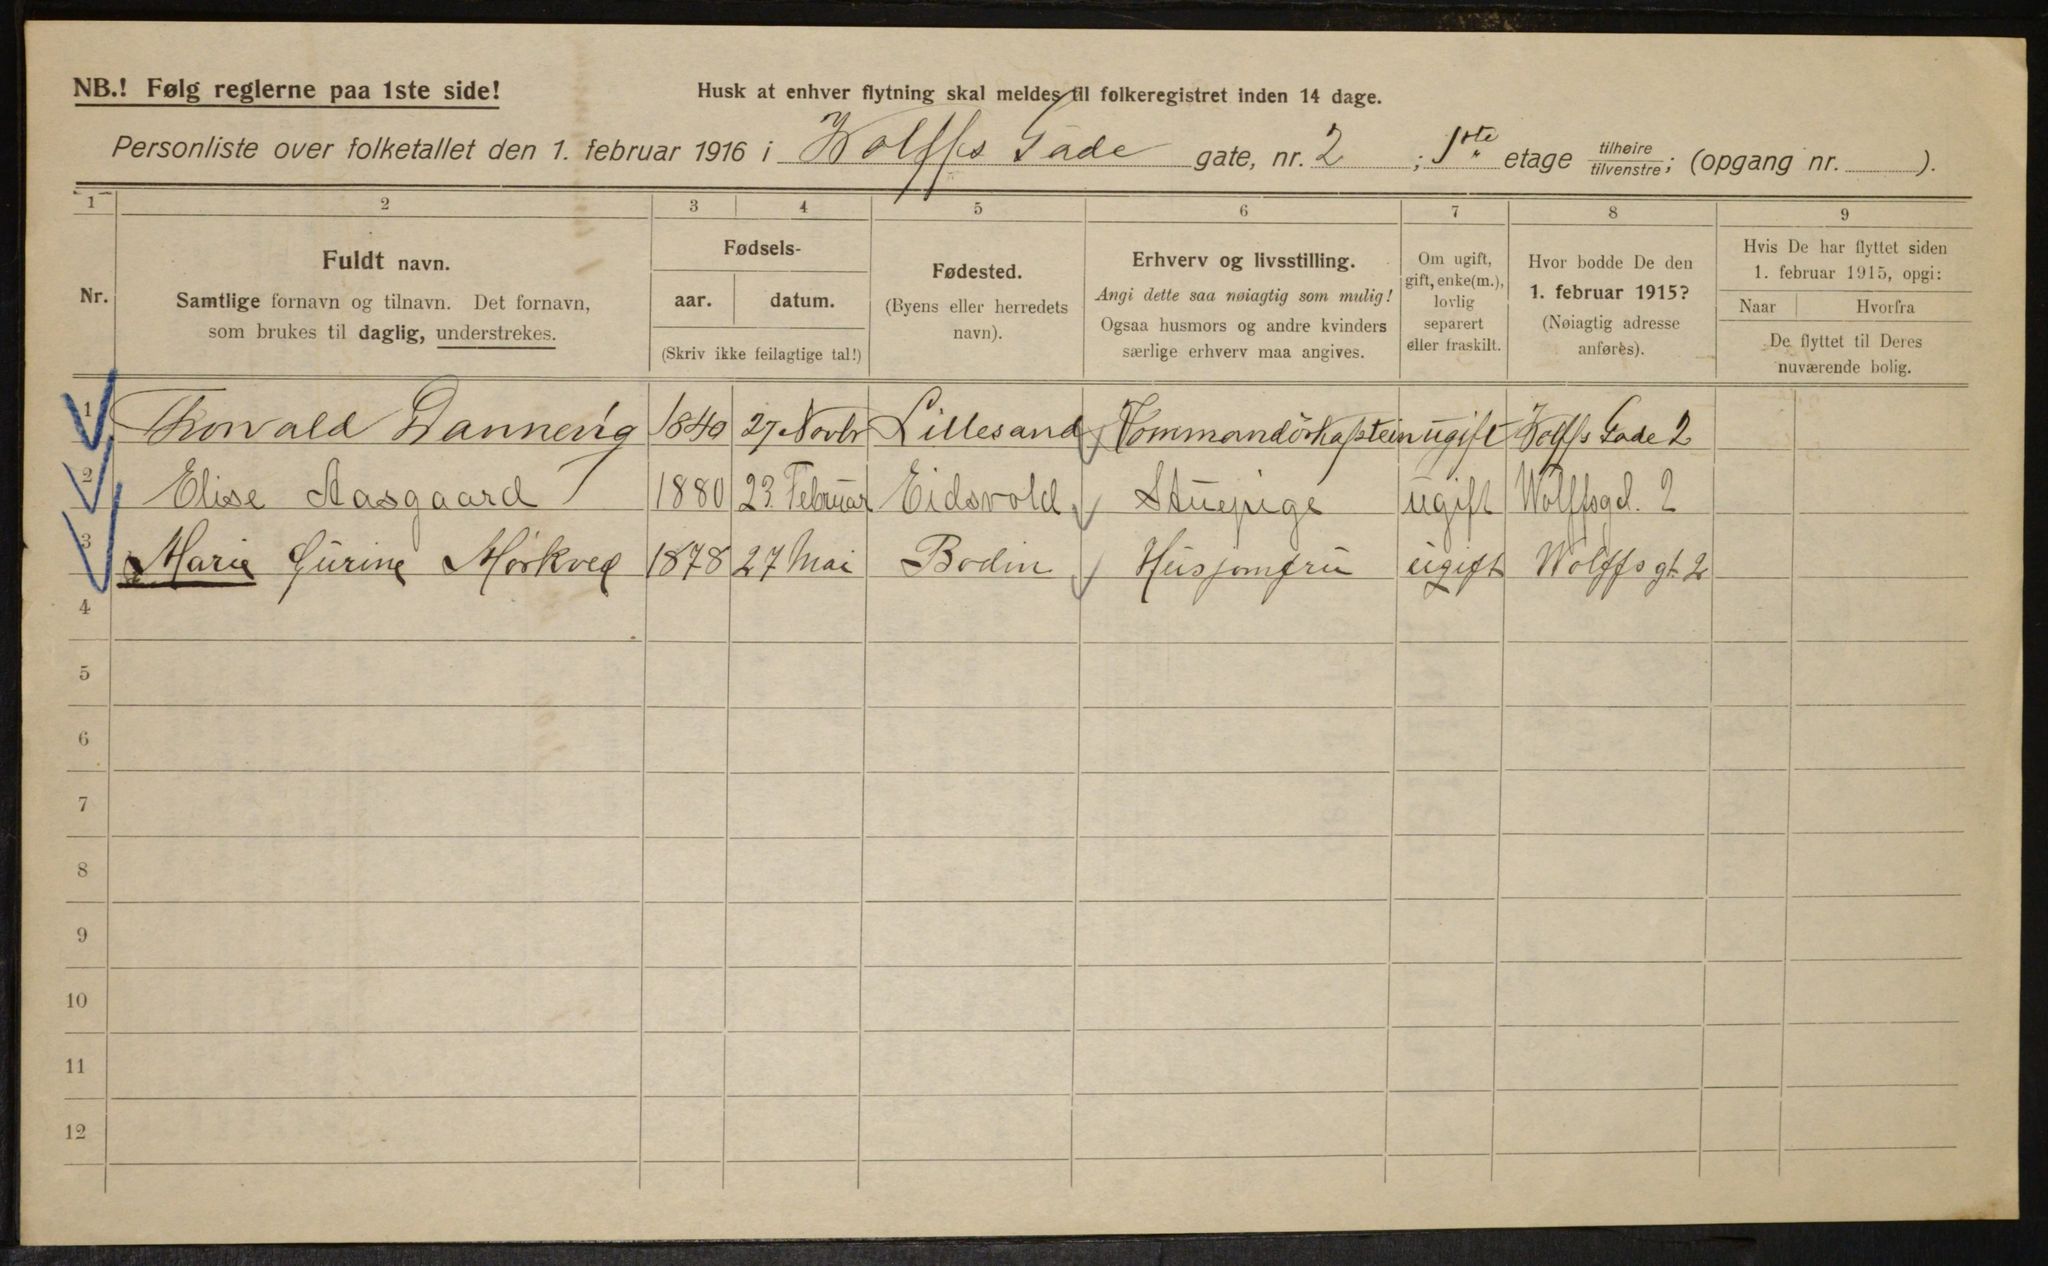 NB.! Følg reglerne paa 1ste side!
Husk at enhver flytning skal meldes til folkeregistret inden 14 dage.
Personliste over folketallet den 1. februar 1916 i Wolffs Gade gate, nr. 2 ; 1ste etage tilhøire/tilvenstre; (opgang nr. ).
1 2 3 4 5 6 7 8 9
Nr.
Fuldt navn.
Samtlige fornavn og tilnavn. Det fornavn,
som brukes til daglig, understrekes.
Fødsels-
aar. datum.
(Skriv ikke feilagtige tal!)
Fødested.
(Byens eller herredets
navn).
Erhverv og livsstilling.
Angi dette saa nøiagtig som mulig!
Ogsaa husmors og andre kvinders
særlige erhverv maa angives.
Om ugift,
gift, enke(m.),
lovlig
separert
eller fraskilt.
Hvor bodde De den
1. februar 1915?
(Nøiagtig adresse
anføres).
Hvis De har flyttet siden
1. februar 1915, opgi:
Naar Hvorfra
De flyttet til Deres
nuværende bolig.
1 Thorvald Dannevig 1840 27 Novbr Lillesand Kommandörkaptein ugift Wolffs Gade 2
2 Elise Aasgaard 1880 23. Februar Eidsvold Stuepige ugift Wolffsgd. 2
3 Marie Gurine Mörkved 1878 27 Mai Bodin Husjomfru ugift Wolffs gt. 2
4
5
6
7
8
9
10
11
12